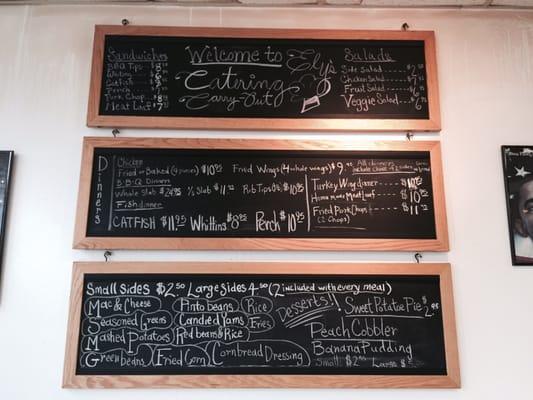 Sandwiches
BBQ Tips
Whiting
Catfish
Perch
Pork Chop
Meat Loaf
Welcome to Ely's
Catering
Carry-Out
Salads
Side Salad
Chicken Salad
Fruit Salad
Veggie Salad
Dinners
Chicken
Fried or Baked (4 pieces) $10.95
B.B.Q Dinners
Whole Slab $24.95 ½ Slab Rib Tips $10.95
Fish dinner
CATFISH $11.95 Whitting $8.95 Perch $10.95
Fried Wings (4 whole wings) $9.
All dinners include choice of 2 sides
Turkey Wing dinner
Home Made Meat Loaf
Fried Pork Chops
(2 Chops)
Small sides $2.50 Large sides 4.50 (2 included with every meal)
Mac & Cheese Pinto beans Rice
Seasoned Greens Candied Yams Fries
Mashed Potatoes Red beans & Rice
Green beans Fried Corn Cornbread Dressing
Desserts!!
Sweet Potatoe Pie
Peach Cobbler
Banana Pudding
Small Large